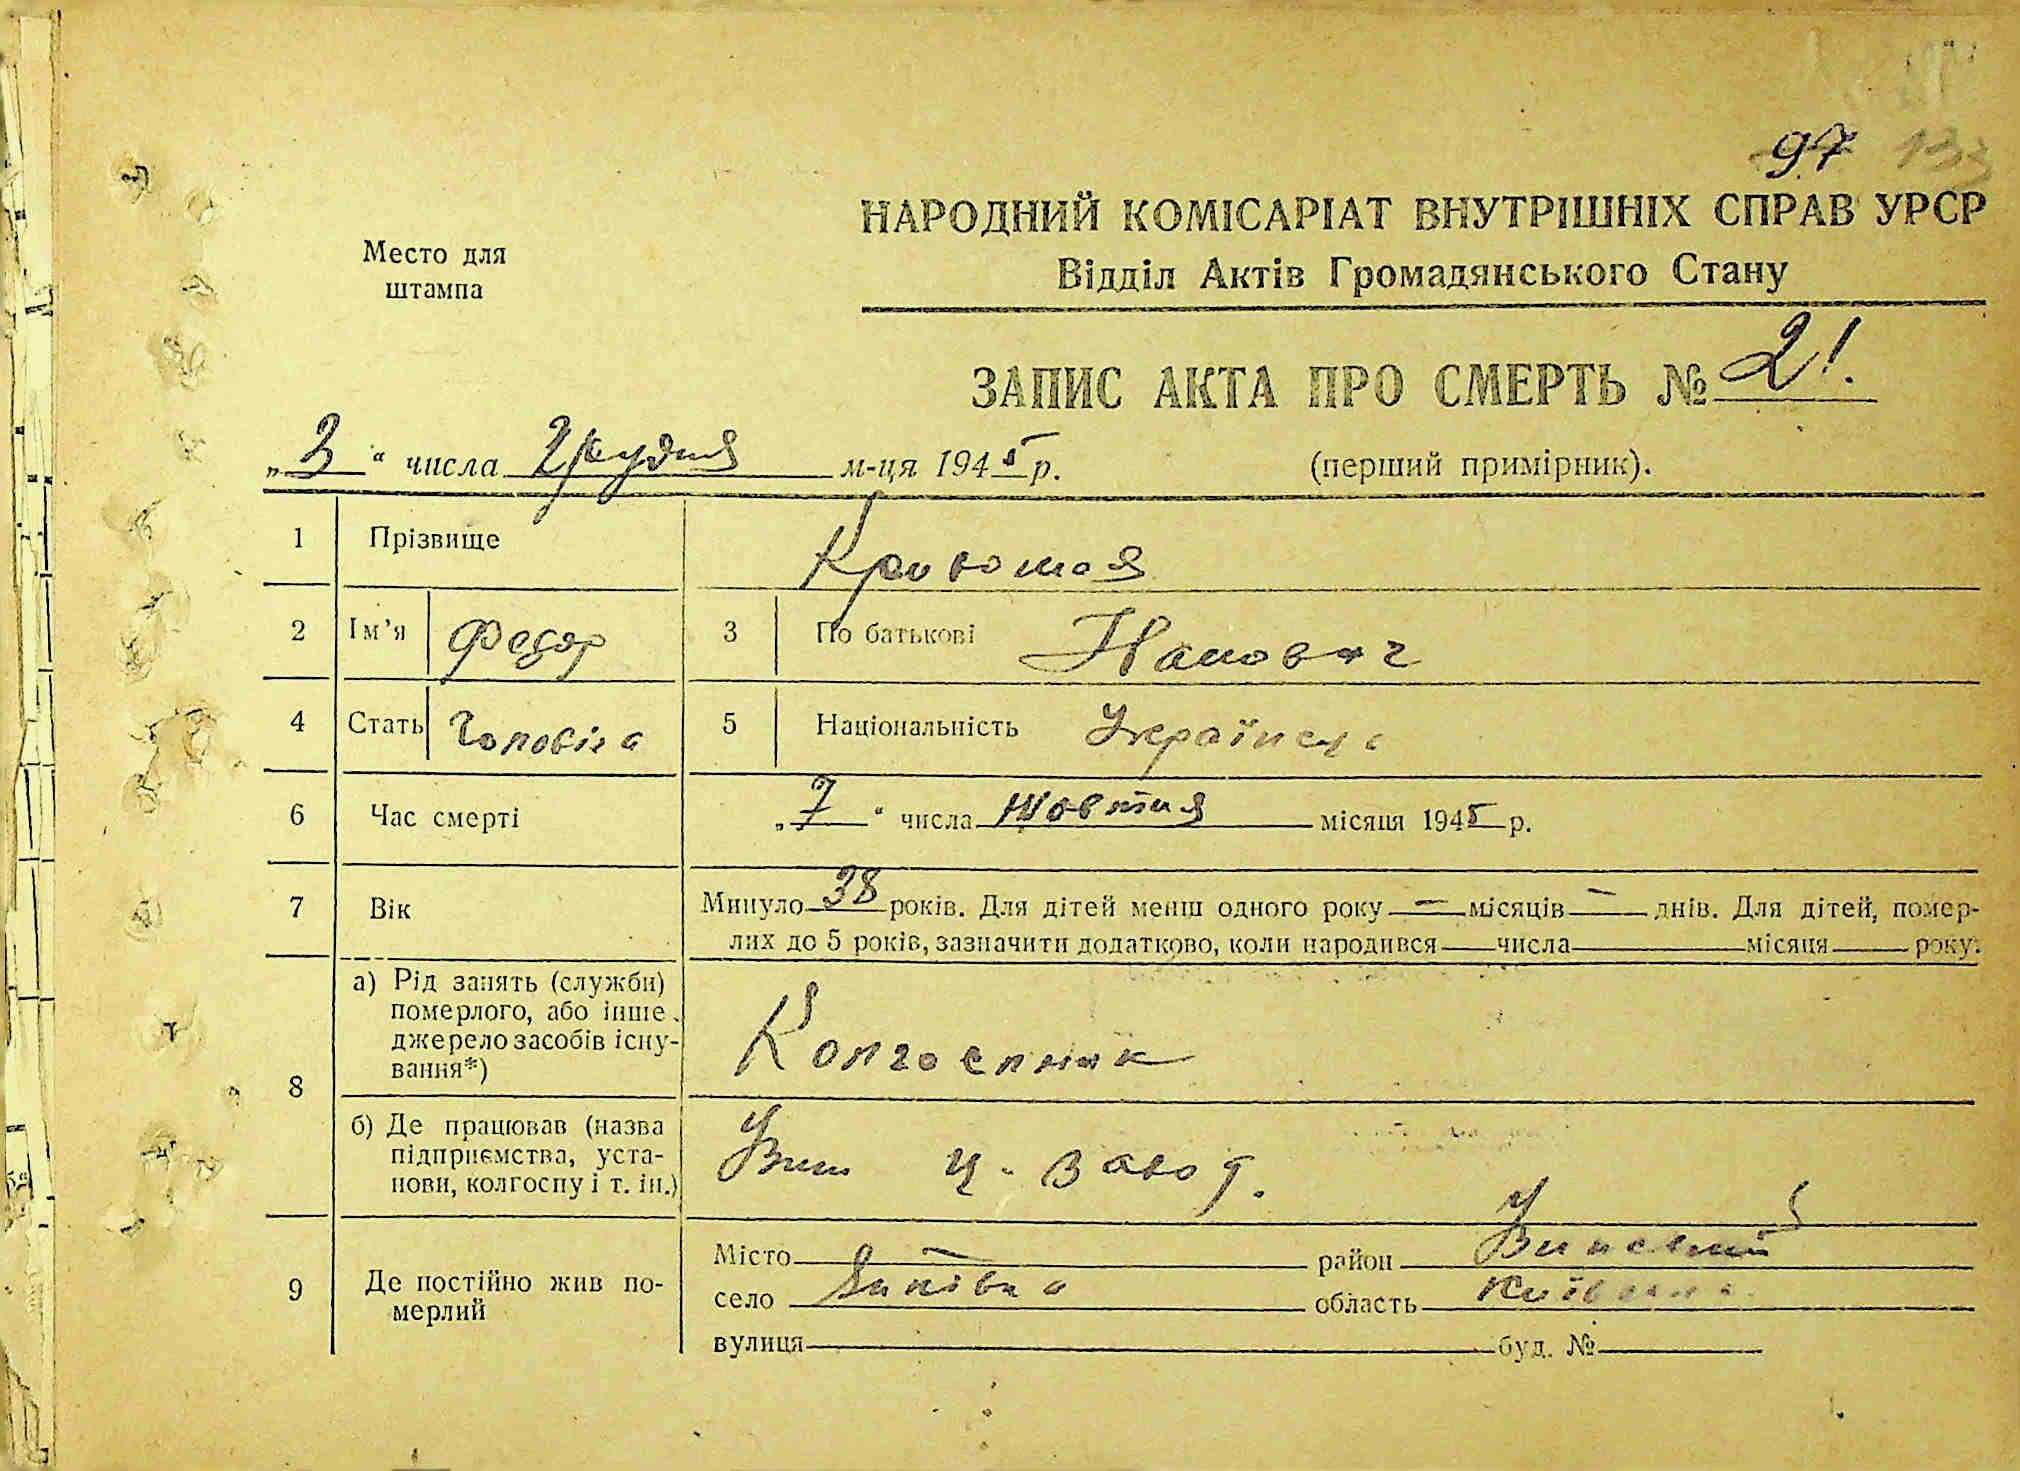 97 133
Место для
штампа
НАРОДНИЙ КОМІСАРІАТ ВНУТРІШНІХ СПРАВ УРСР
Відділ Актів Громадянського Стану
ЗАПИС АКТА ПРО СМЕРТЬ № 21.
„3“ числа Грудня м-ця 1945 р.
(перший примірник).
1 Прізвище Кривошая
2 Ім’я Федор 3 По батькові
4 Стать Чоловіча 5 Національність Українець
6 Час смерті „7“ числа Жовтня місяця 1945 р.
7 Вік Минуло 38 років. Для дітей менш одного року — місяців — днів. Для дітей, помер-
лих до 5 років, зазначити додатково, коли народився числа місяця року.
8 а) Рід занять (служби)
померлого, або інше
джерело засобів існу-
вання*)
Колгоспник
б) Де працював (назва
підприємства, уста-
нови, колгоспу і т. ін.)
Узин ц-завод.
9 Де постійно жив по-
мерлий
Місто — район Узинський
село область Київська
вулиця буд. №